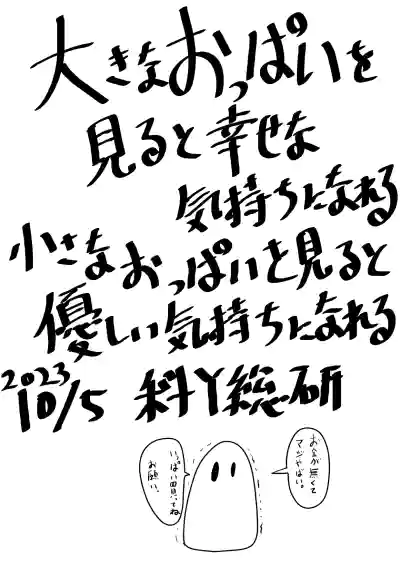 大きなおっぱいを
見ると幸せな
気持ちになれる
小さなおっぱいを見ると
優しい気持ちになれる
2023
10/5 科Y総研
お金が無くて
マジやばい。
いっぱい買ってね
お願い。